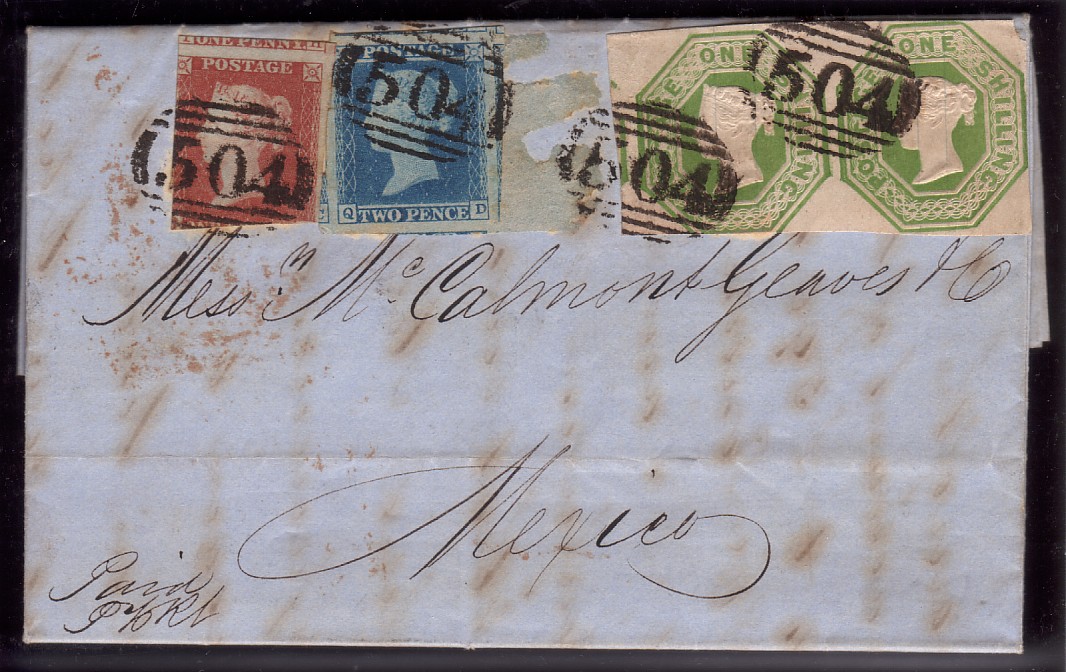 ONE PENNY H
POSTAGE
504
POSTAGE
504
Q TWO PENCE D
504
ONE SHILLING
504
ONE SHILLING
Mess.rs Mc. Calmont Geaves & Co
Mexico
Paid